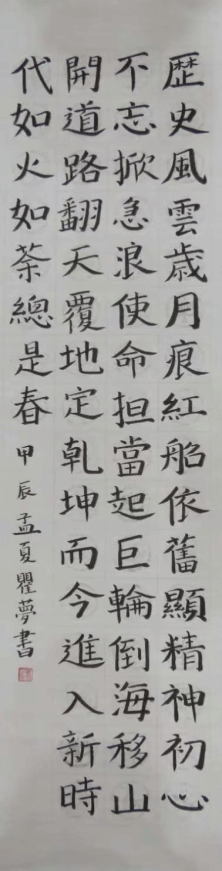 歷史風雲歲月痕紅船依舊顯精神初心
不忘掀急浪使命担當起巨輪倒海移山
開道路翻天覆地定乹坤而今進入新時
代如火如荼總是春
甲辰孟夏瞿夢書